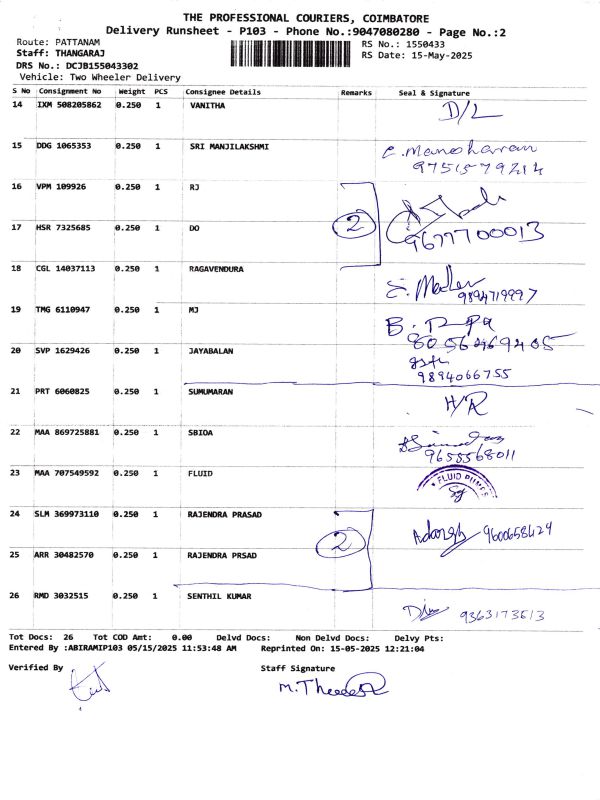 THE PROFESSIONAL COURIERS, COIMBATORE
Delivery Runsheet - P103 - Phone No.:9047080280 - Page No.:2
Route: PATTANAM
RS No.: 1550433
Staff: THANGARAJ
RS Date: 15-May-2025
DRS No.: DCJB155043302
Vehicle: Two Wheeler Delivery
S No Consignment No Weight PCS Consignee Details Remarks Seal & Signature
14 IXM 508205862 0.250 1 VANITHA D/L
15 DDG 1065353 0.250 1 SRI MANJILAKSHMI C. Manoharan
9751579214
16 VPM 109926 0.250 1 RJ
2
17 HSR 7325685 0.250 1 DO 9677700013
18 CGL 14037113 0.250 1 RAGAVENDURA
9894719997
19 TMG 6110947 0.250 1 MJ B.
20 SVP 1629426 0.250 1 JAYABALAN
9894066755
21 PRT 6060825 0.250 1 SUMUMARAN H/R
22 MAA 869725881 0.250 1 SBIOA
9658568011
23 MAA 707549592 0.250 1 FLUID FLUID PUMPS
24 SLM 369973110 0.250 1 RAJENDRA PRASAD Adarsh 9600658429
2
25 ARR 30482570 0.250 1 RAJENDRA PRSAD
26 RMD 3032515 0.250 1 SENTHIL KUMAR 9363173613
Tot Docs: 26 Tot COD Amt: 0.00 Delvd Docs: Non Delvd Docs: Delvy Pts:
Entered By :ABIRAMIP103 05/15/2025 11:53:48 AM Reprinted On: 15-05-2025 12:21:04
Verified By Staff Signature
M.